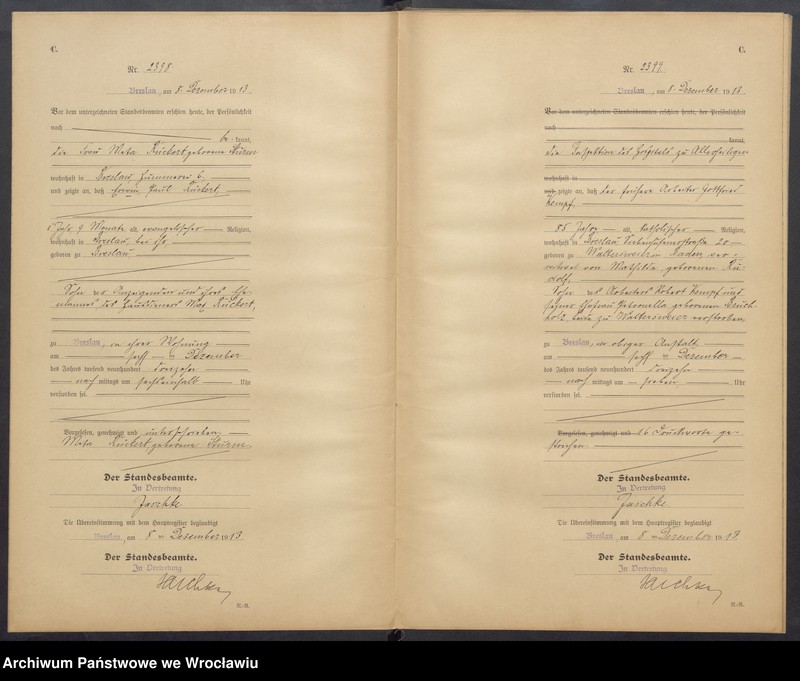 C.
Nr. 2398
Breslau, am 8. Dezember 1913
Vor dem unterzeichneten Standesbeamten erschien heute, der Persönlichkeit
nach
be kannt,
die Frau Meta Rückert geborene Sturm
wohnhaft in Breslau, 6.
und zeigte an, daß Erwin Paul Rückert
9 Monate alt, evangelischer Religion,
wohnhaft in Breslau, bei ihr
geboren zu Breslau
Sohn der Anzeigenden und ihres Ehe-
mannes des Max Rückert,
zu Breslau, in ihrer Wohnung
am Dezember
des Jahres tausend neunhundert dreizehn
nach mittags um sechseinhalb Uhr
verstorben sei.
Vorgelesen, genehmigt und unterschrieben
Meta Rückert geborene Sturm
Der Standesbeamte.
In Vertretung
Jaschke
Die Übereinstimmung mit dem Hauptregister beglaubigt
Breslau, am 8. Dezember 1913
Der Standesbeamte.
In Vertretung
Jaschke
C.
Nr. 2399
Breslau, am 8. Dezember 1913
Vor dem unterzeichneten Standesbeamten erschien heute, der Persönlichkeit
nach
kannt,
die Inspektion des Hospitals zu Allerheiligen
wohnhaft in
und zeigte an, daß der frühere Arbeiter Gottfried
Kempf,
55 Jahre alt, katholischer Religion,
wohnhaft in Breslau 20
geboren zu in Baden, ver-
witwet von Mathilde, geborenen Ru-
dolf,
Sohn des Arbeiters Robert Kempf und
seiner Ehefrau Petronella geborenen
beide zu verstorben
zu Breslau, in obiger Anstalt
am Dezember
des Jahres tausend neunhundert dreizehn
nach mittags um sieben Uhr
verstorben sei.
Vorgelesen, genehmigt und 16 Druckworte ge-
strichen.
Der Standesbeamte.
In Vertretung
Jaschke
Die Übereinstimmung mit dem Hauptregister beglaubigt
Breslau, am 8. Dezember 1913
Der Standesbeamte.
In Vertretung
Jaschke
Archiwum Państwowe we Wrocławiu